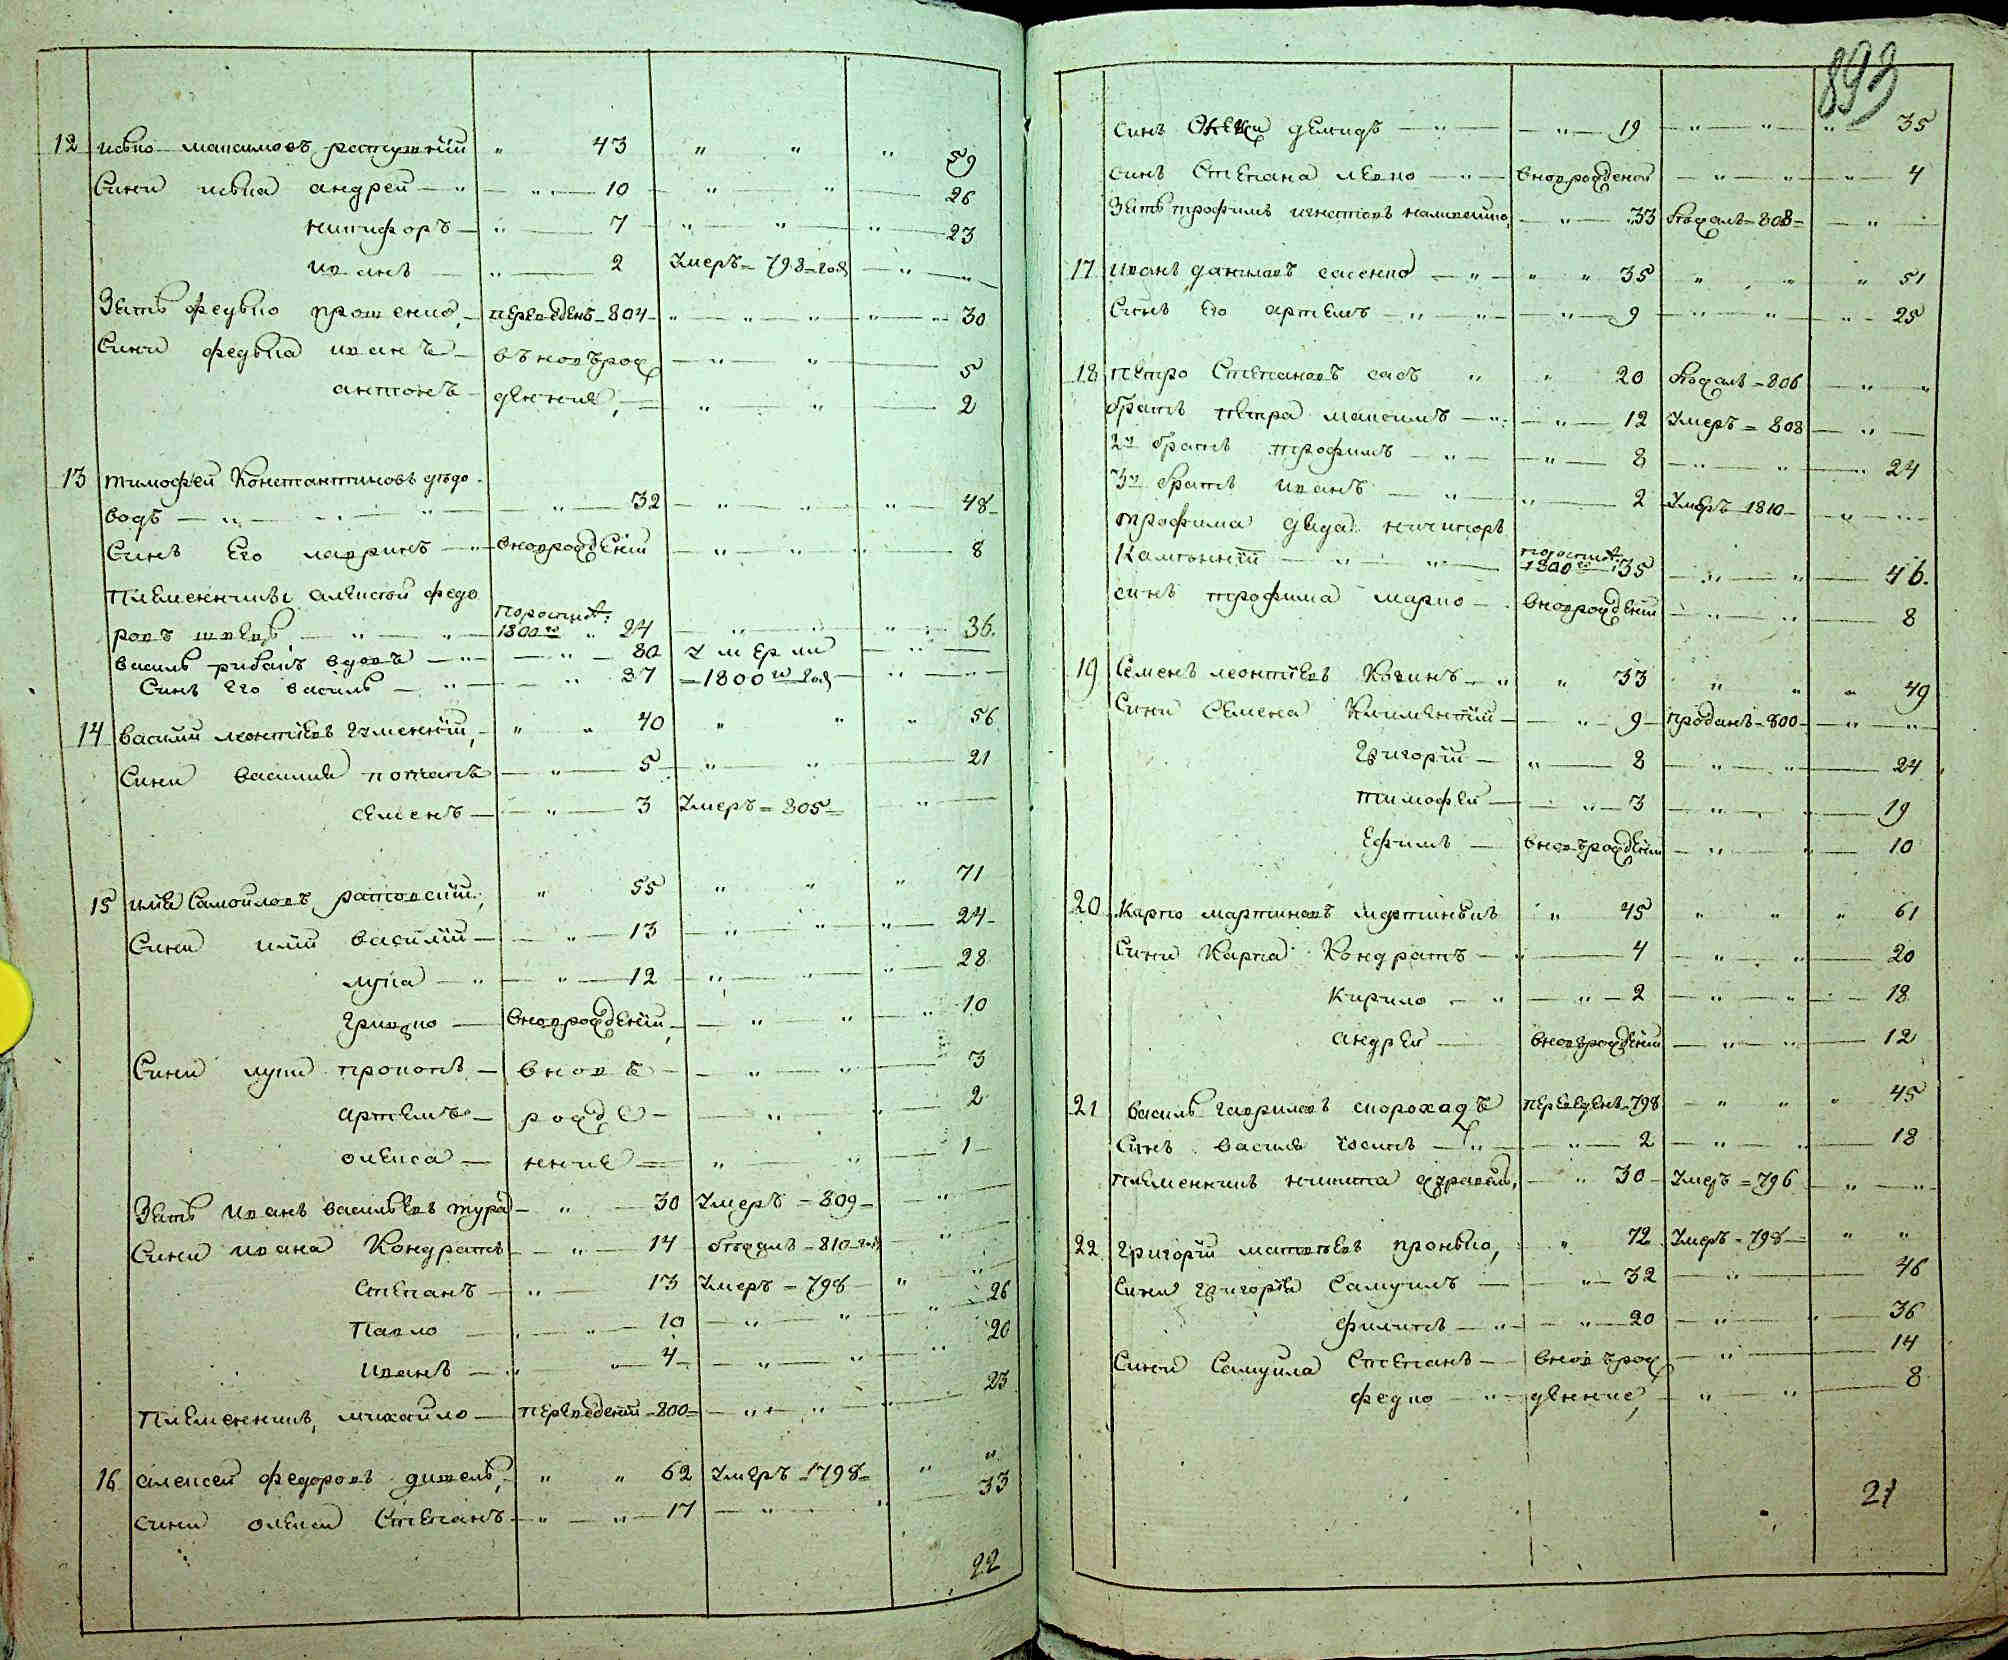 12 исько максимовъ " 43 " " " 59
Сини иська андрей — " — " — 10 — " — " — 26
никифоръ — " — 7 — " — " — " — 23
иванъ — " — 2 Умеръ = 798 = года — " — "
Зять федько прощенко, переведенъ — 804 — " — " — " — " — 30
Сини федька иванъ — въновърож — " — " — 5
антонъ — денние, — " — " — 2
13 тимофей Константиновъ дѣдо
водъ — " — " — 32 — " — " — " — 48
Синъ Его лавринъ — " — вноврожденій — " — " — 8
племенникъ алексѣй федо
ровъ швецъ — " — " — 1800го " 24 — " — " — 36.
василь рибакъ вдовъ — " — " — 80 Умерли — " —
Синъ его василь — " — " — 37 — 1800го года — " — "
14 василий леонтіевъ " " 40 " " " 56
Сини василия потапъ — " — 5 — " — " — 21
семенъ — " — 3 Умеръ = 805 — " —
15 илія Самойловъ " 55 " " " 71
Сини иліи василій — " — 13 — " — " — " — 24
лука — " — " — 12 — " — " — " — 28
грицко — вноврожденій, — " — " — " 10
Сини луки прокопъ — вновъ — " — " — 3
артемъ — рожде — " — " — 2
олекса — нние — " — " — 1
Зять иванъ васильевъ тура — " — 30 Умеръ — 809 — "
Сини ивана Кондратъ — " — 14 — бѣжалъ — 810 — года — "
степанъ — " — 13 Умеръ — 798 — " "
павло — " — 10 — " — " — " — 26
иванъ — " " 4 — " — " — " 20
племенникъ, михайло — переведеній — 800 — " — " — " — 23
16 алексей федоровъ " " 62 Умеръ — 1798 — " "
сини олексы Степанъ — " — " — 17 — " — " — 33
22
893
синъ Олексы демидъ — " — " — 19 — " — " — " — 35
синъ Степана левко — " — вноврожденой — " — " — " — 4
Зять трофимъ игнатовъ — " — 33 бѣжалъ = 808 — " —
17 иванъ даниловъ сасенко — " — " " 35 " " " 51
Синъ Его артемъ — " — " — " — 9 — " — " — " — 25
18 петро Степановъ сасъ " " 20 бѣжалъ = 806 — " — "
братъ петра максимъ — " — " — 12 Умеръ = 808 — " —
2й братъ трофимъ — " — " — 8 — " — " — " 24
3й братъ иванъ — " — " — 2 Умеръ 1810 — " — "
трофима дядя никифоръ
1800го 35 — " — " — 46.
синъ трофима марко — вноврожденій — " — " — 8
19 Семенъ леонтіевъ — " " 33 " " " 49
Сини Семена Климентій — " — 9 — проданъ = 800 — " — "
Григорій — " — 8 — " — " — 24
тимофей — " — 3 — " — 19
ефимъ — вновърожденій — " — " — 10
20 Карпо мартиновъ " 45 " " " 61
Сини Карпа Кондратъ — " — 4 — " — " — 20
Кирило — " — " — 2 — " — " — 18
андрей — вновърожденій — " — " — 12
21 василь гавриловъ скороходъ переведенъ — 798 — " " " 45
синъ василя осипъ — " — " — 2 — " — " — 18
племенникъ никита — " 30 — Умеръ = 796 " — "
22 Григорій матвѣевъ пронько, " 72 Умеръ = 798 — " "
сини григорія Самуилъ — " — 32 — " — 46
филипъ — " — " — 20 — " — " — 36
Сини Самуила Степанъ — вновърож — " — 14
федко — " — денние, — " — " — 8
21